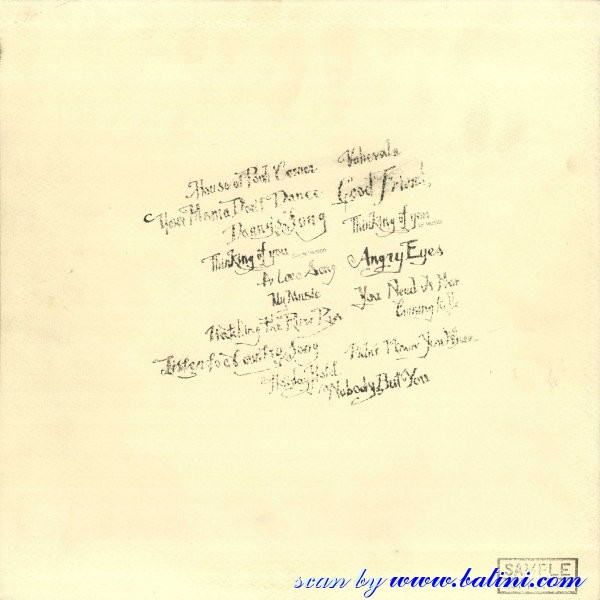 House at Pooh Corner
Your Mama Don't Dance
Danny's Song
Thinking of you
A Love Song
My Music
Watching the River Run
Listen to a Country Song
Vahevala
Good Friend
Thinking of you
Angry Eyes
You Need A Man
Coming to You
Peace of Mind
Nobody But You
SAMPLE
scan by www.balini.com